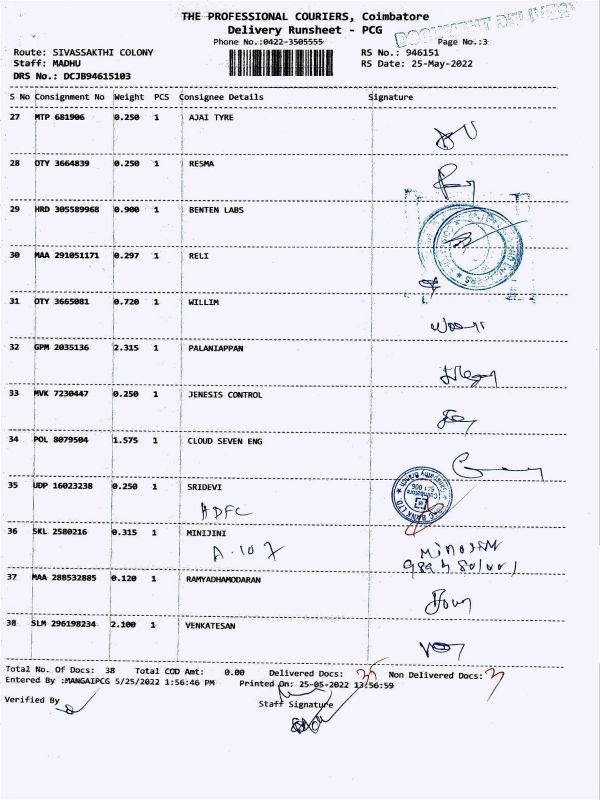 THE PROFESSIONAL COURIERS, Coimbatore
Delivery Runsheet - PCG
DOCUMENT DELIVERY
Phone No.:0422-3505555
Page No.:3
Route: SIVASSAKTHI COLONY
RS No.: 946151
Staff: MADHU
RS Date: 25-May-2022
DRS No.: DCJB94615103
S No Consignment No Weight PCS Consignee Details Signature
27 MTP 681906 0.250 1 AJAI TYRE
28 OTY 3664839 0.250 1 RESMA
29 HRD 305589968 0.900 1 BENTEN LABS
30 MAA 291051171 0.297 1 RELI
31 OTY 3665081 0.720 1 WILLIM
32 GPM 2035136 2.315 1 PALANIAPPAN
33 MVK 7230447 0.250 1 JENESIS CONTROL
34 POL 8079504 1.575 1 CLOUD SEVEN ENG
35 UDP 16023238 0.250 1 SRIDEVI
HDFC
BANK LTD. Ganapathy Branch
Coimbatore
641 006
36 SKL 2580216 0.315 1 MINIJINI
A.107
37 MAA 288532885 0.120 1 RAMYADHAMODARAN
38 SLM 296198234 2.100 1 VENKATESAN
Total No. Of Docs: 38 Total COD Amt: 0.00 Delivered Docs: 35 Non Delivered Docs: 3
Entered By :MANGAIPCG 5/25/2022 1:56:46 PM Printed On: 25-05-2022 13:56:59
Verified By
Staff Signature